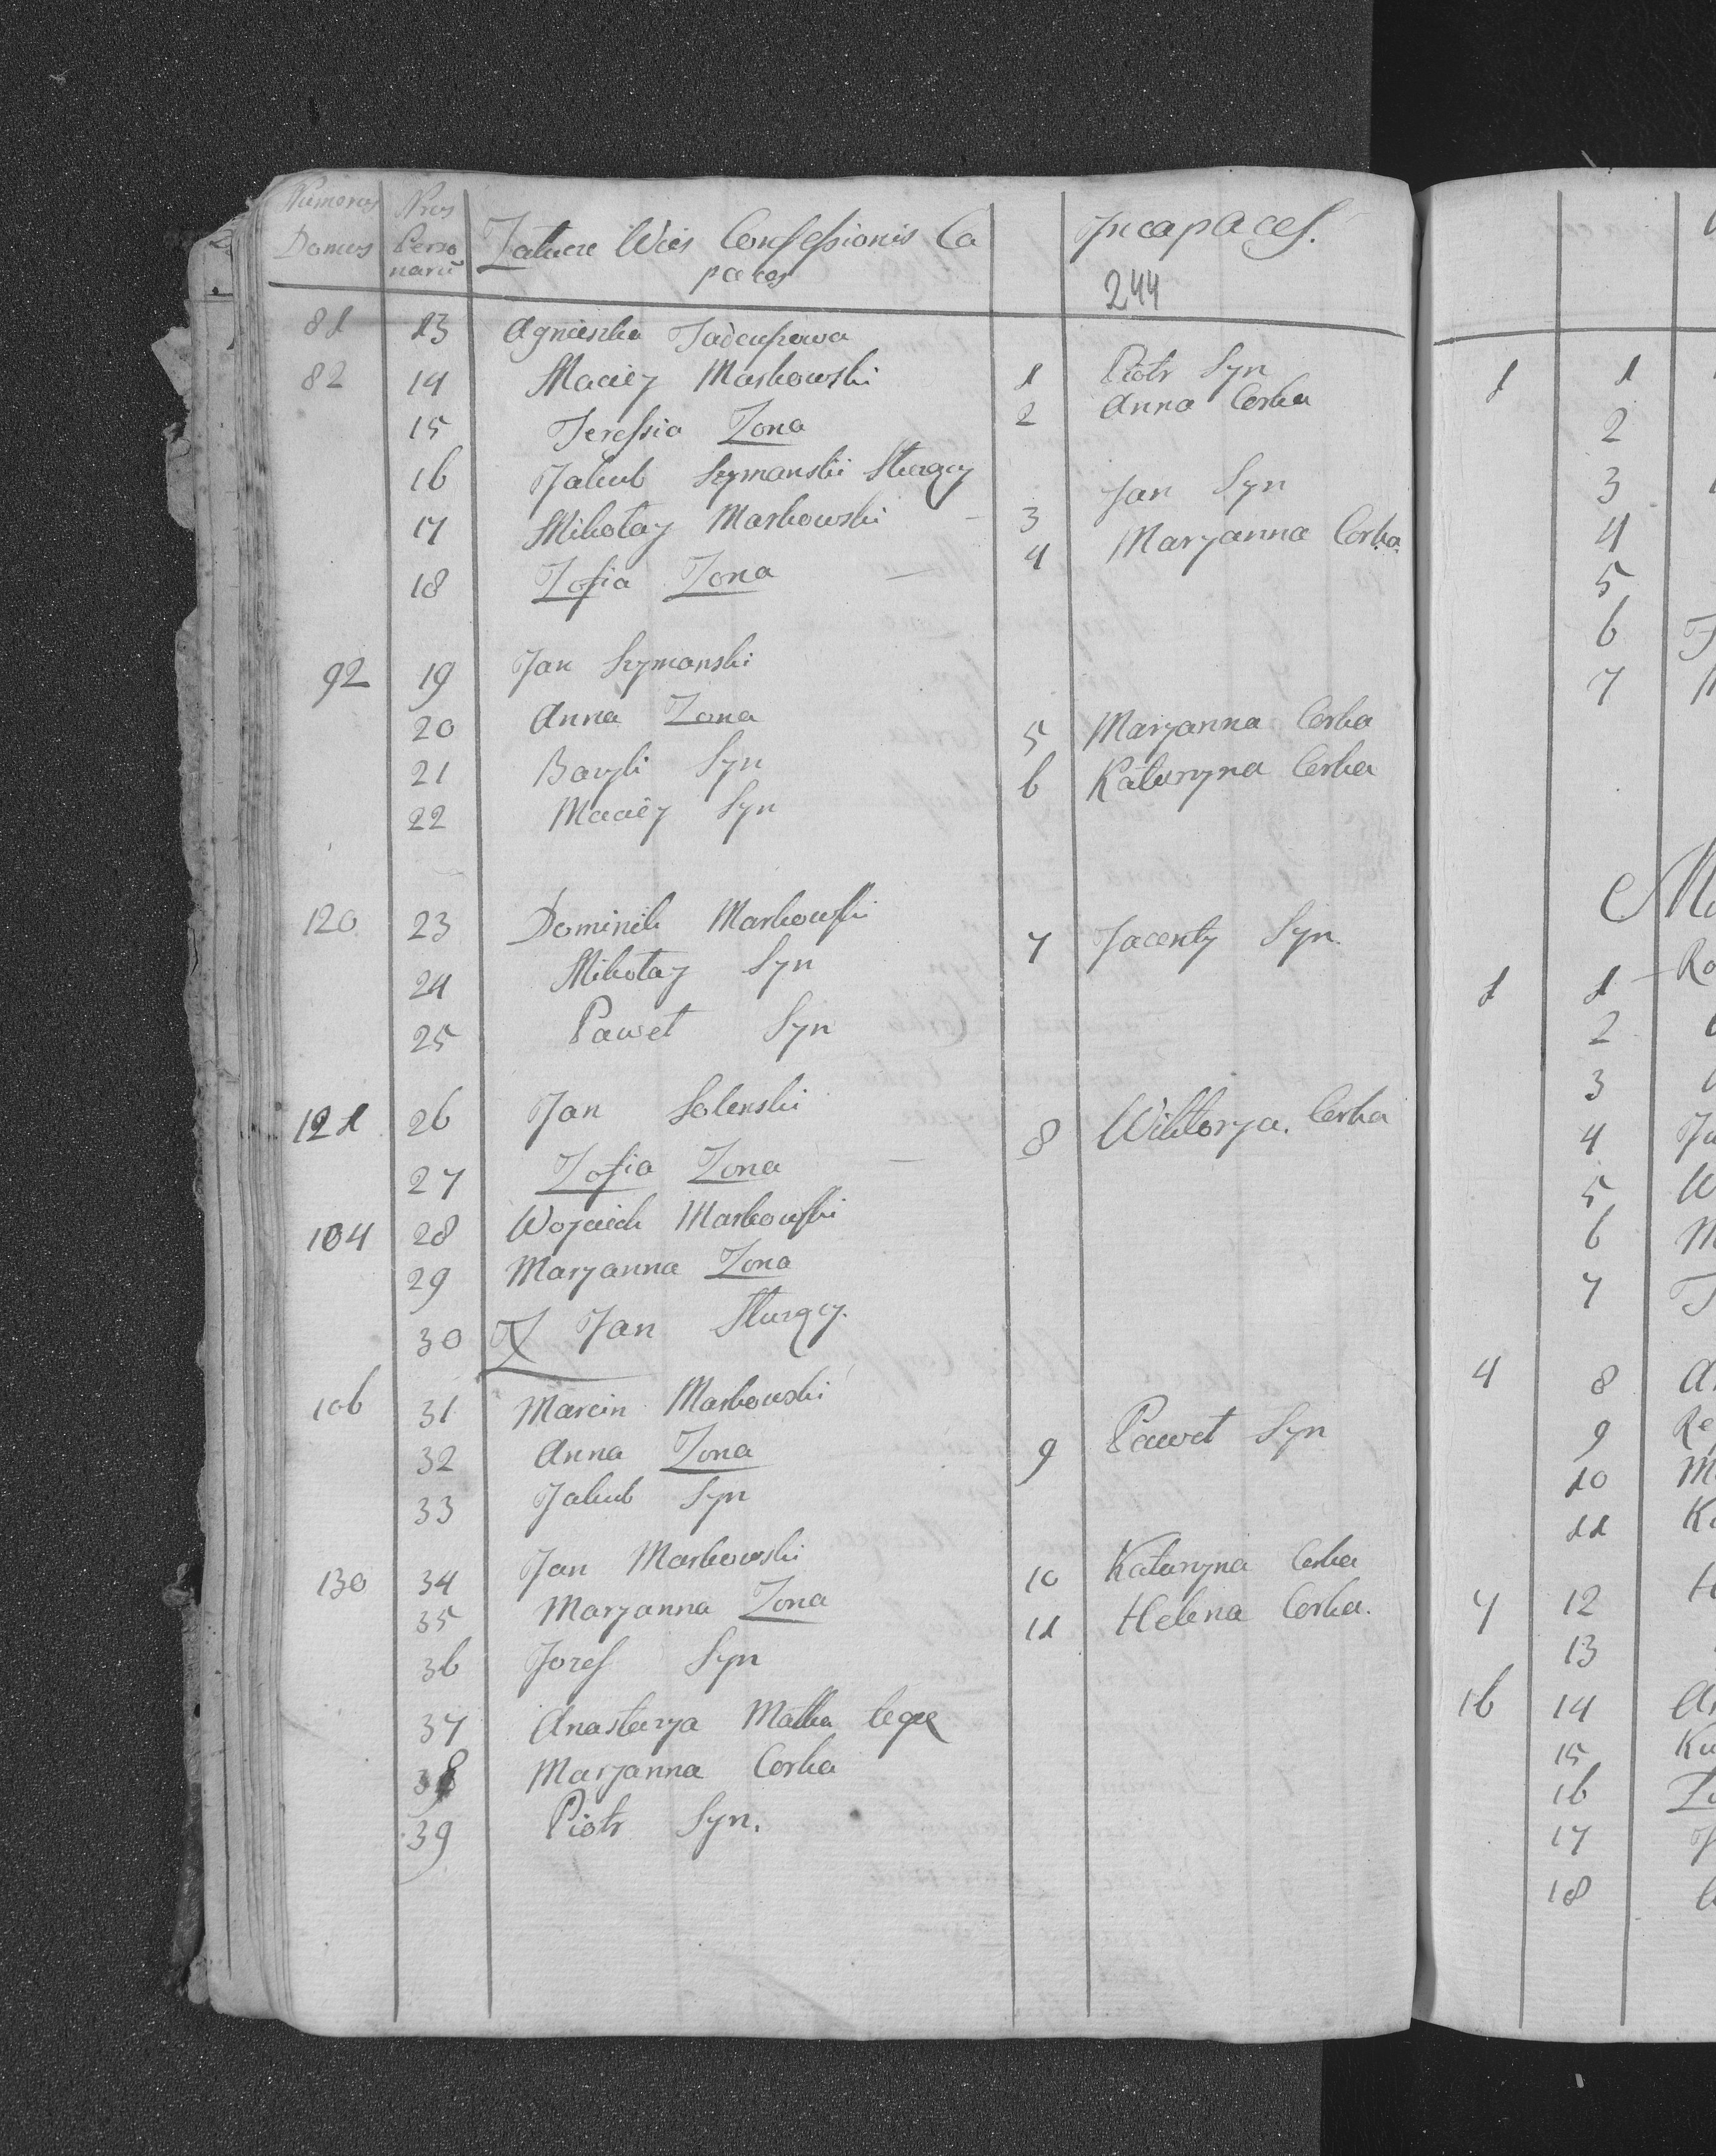 Numerus Domus | Nrus Perso narū | Zalucze Wies Confessionis Ca paces | | Incapaces.
244
81 13 Agnieszka
82 14 Maciey Markowski 1 Piotr Syn
15 Teressia Zona 2 Anna Corka
16 Jakub Szymanski Sluzgcy
17 Mikołay Markowski – 3 Jan Syn
18 Zofia Zona – 4 Maryanna Corka.
92 19 Jan Szymanski
20 Anna Zona 5 Maryanna Corka
21 Bazyli Syn 6 Katarzyna Corka
22 Maciey Syn
120 23 Dominik Markowski 7 Jacenty Syn.
24 Mikołay Syn
25 Paweł Syn
121 26 Jan Solenski
27 Zofia Zona – 8 Wiktorya. Corka
104 28 Woyciech Markowski
29 Maryanna Zona
30 Jan Sluzgcy.
106 31 Marcin Markowski
32 Anna Zona 9 Paweł Syn
33 Jakub Syn
130 34 Jan Markowski 10 Katarzyna Corka
35 Maryanna Zona 11 Helena Corka.
36 Jozef Syn
37 Anastazya Matka
38 Maryanna Corka
39 Piotr Syn.
1 1
2
3
4
5
6
7
1 1
2
3
4
5
6
7
4 8
9
10
11
7 12
13
16 14
15
16
17
18